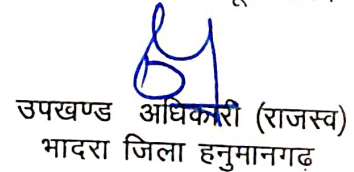 उपखण्ड अधिकारी (राजस्व)
भादरा जिला हनुमानगढ़